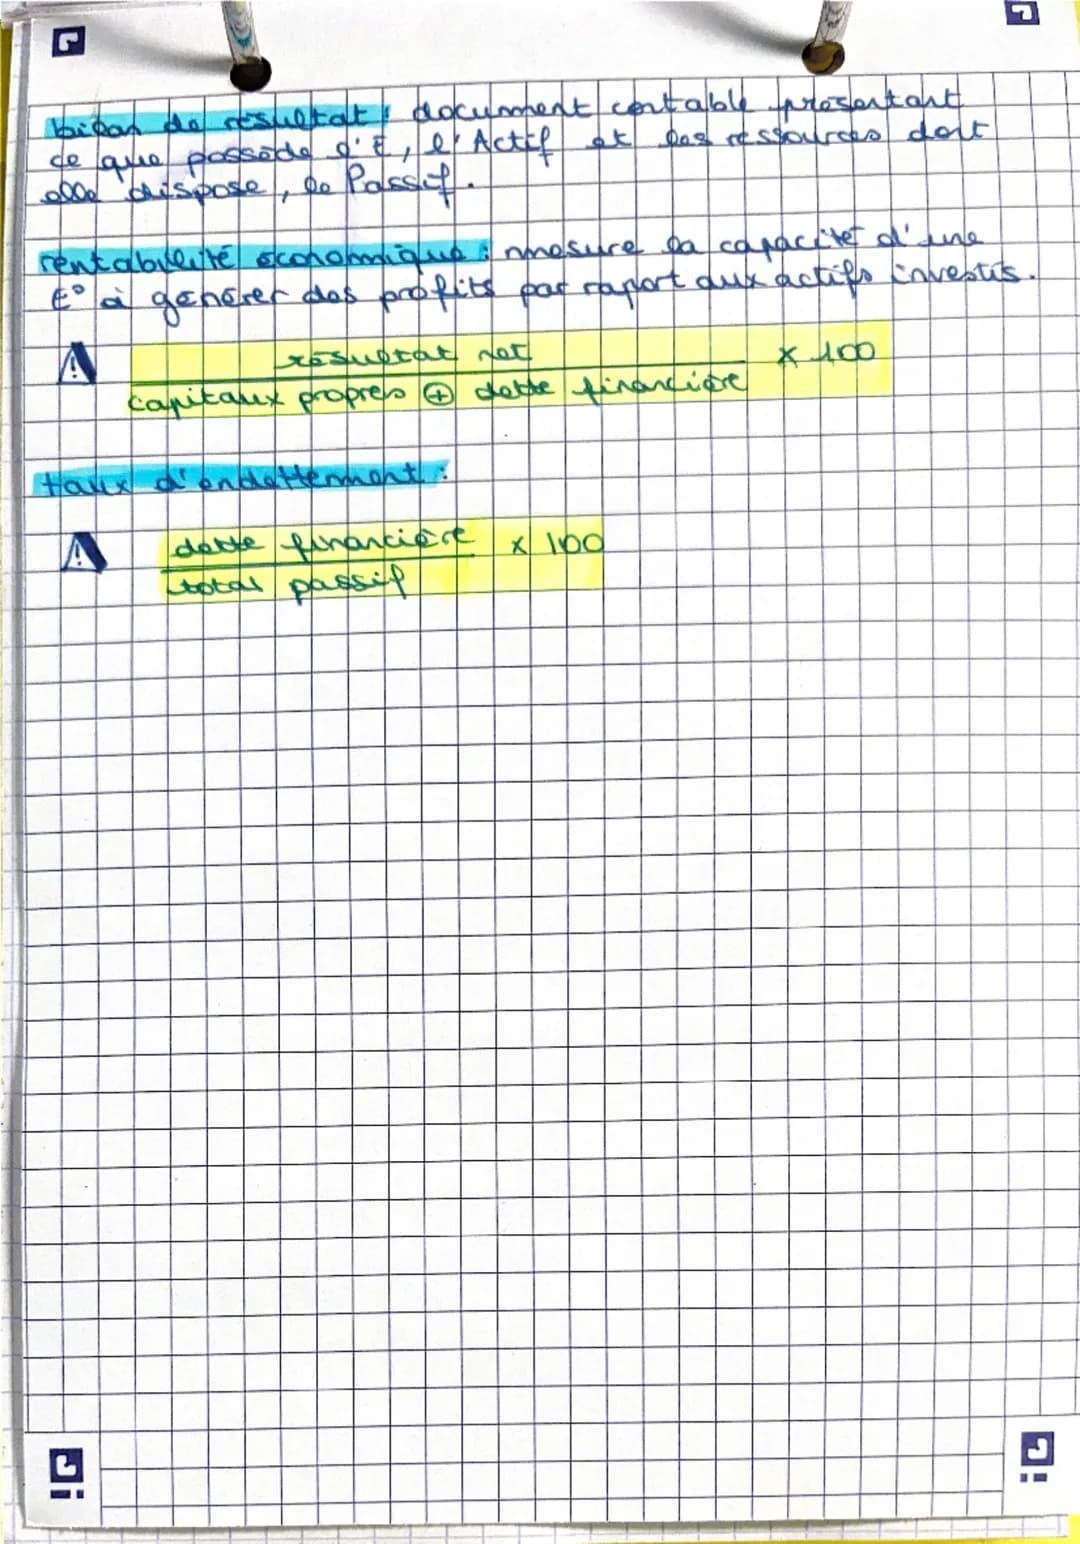 bilan de résultat : document contable présentant
ce que possède l'E, l'Actif et les ressources dont
elle dispose, le Passif.
rentabilité économique : mesure la capacité d'une
E° à générer des profits par raport aux actifs investis.
résultat net x 100
capitaux propres + dette financière
taux d'endettement :
dette financière x 100
total passif